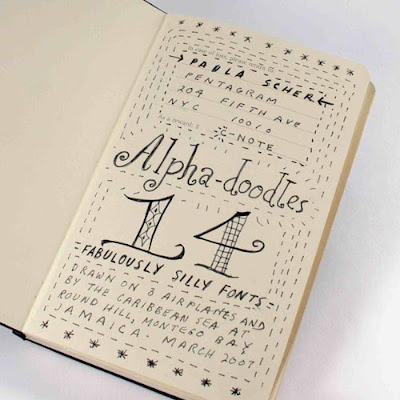 In case of loss, please return to:
PAULA SCHER
PENTAGRAM
204 FIFTH AVE
NYC 10010
As a reward: $ C-NOTE
Alpha-doodles
14
FABULOUSLY SILLY FONTS
DRAWN ON 8 AIRPLANES AND
BY THE CARIBBEAN SEA AT
ROUND HILL, MONTEGO BAY
JAMAICA. MARCH 2007